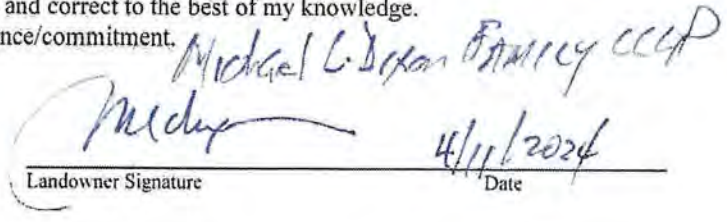 and correct to the best of my knowledge.
nce/commitment.
Michael L. Dixon Family LLLP
4/11/2024
Landowner Signature
Date